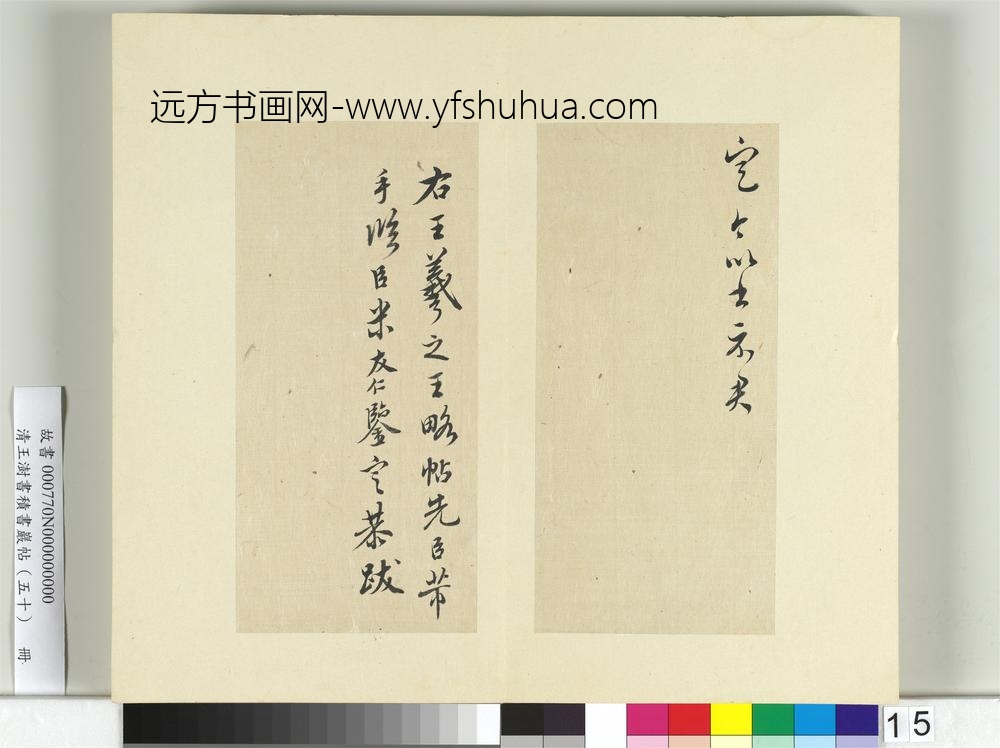 远方书画网-www.yfshuhua.com
定今以書示君
右王羲之王略帖先臣芾
手臨臣米友仁鑒定恭跋
故書 000770N000000000
清王澍書積書巖帖（五十） 冊
15